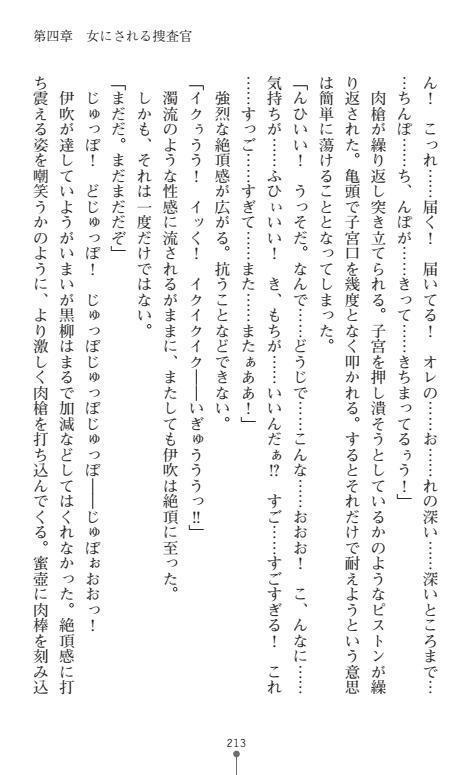 第四章　女にされる捜査官
ん！　こっれ……届く！　届いてる！　オレの……お……れの深い……深いところまで…
…ちんぽ……ち、んぽが……きって……きちまってるぅう！」
肉槍が繰り返し突き立てられる。子宮を押し潰そうとしているかのようなピストンが繰
り返された。亀頭で子宮口を幾度となく叩かれる。するとそれだけで耐えようという意思
は簡単に蕩けることとなってしまった。
「んひいい！　うっそだ。なんで……どうじで……こんな……おおお！　こ、んなに……
気持ちが……ふひぃいい！　き、もちが……いいんだぁ!?　すご……すごすぎる！　これ
……すっご……すぎて……また……またぁああ！」
強烈な絶頂感が広がる。抗うことなどできない。
「イクぅうう！　イッく！　イクイクイク――いぎゅうううっ!!」
濁流のような性感に流されるがままに、またしても伊吹は絶頂に至った。
しかも、それは一度だけではない。
「まだだ。まだまだだぞ」
じゅっぽ！　どじゅっぽ！　じゅっぽじゅっぽじゅっぽ――じゅぽぉおおっ！
伊吹が達していようがいまいが黒柳はまるで加減などしてはくれなかった。絶頂感に打
ち震える姿を嘲笑うかのように、より激しく肉槍を打ち込んでくる。蜜壺に肉棒を刻み込
213